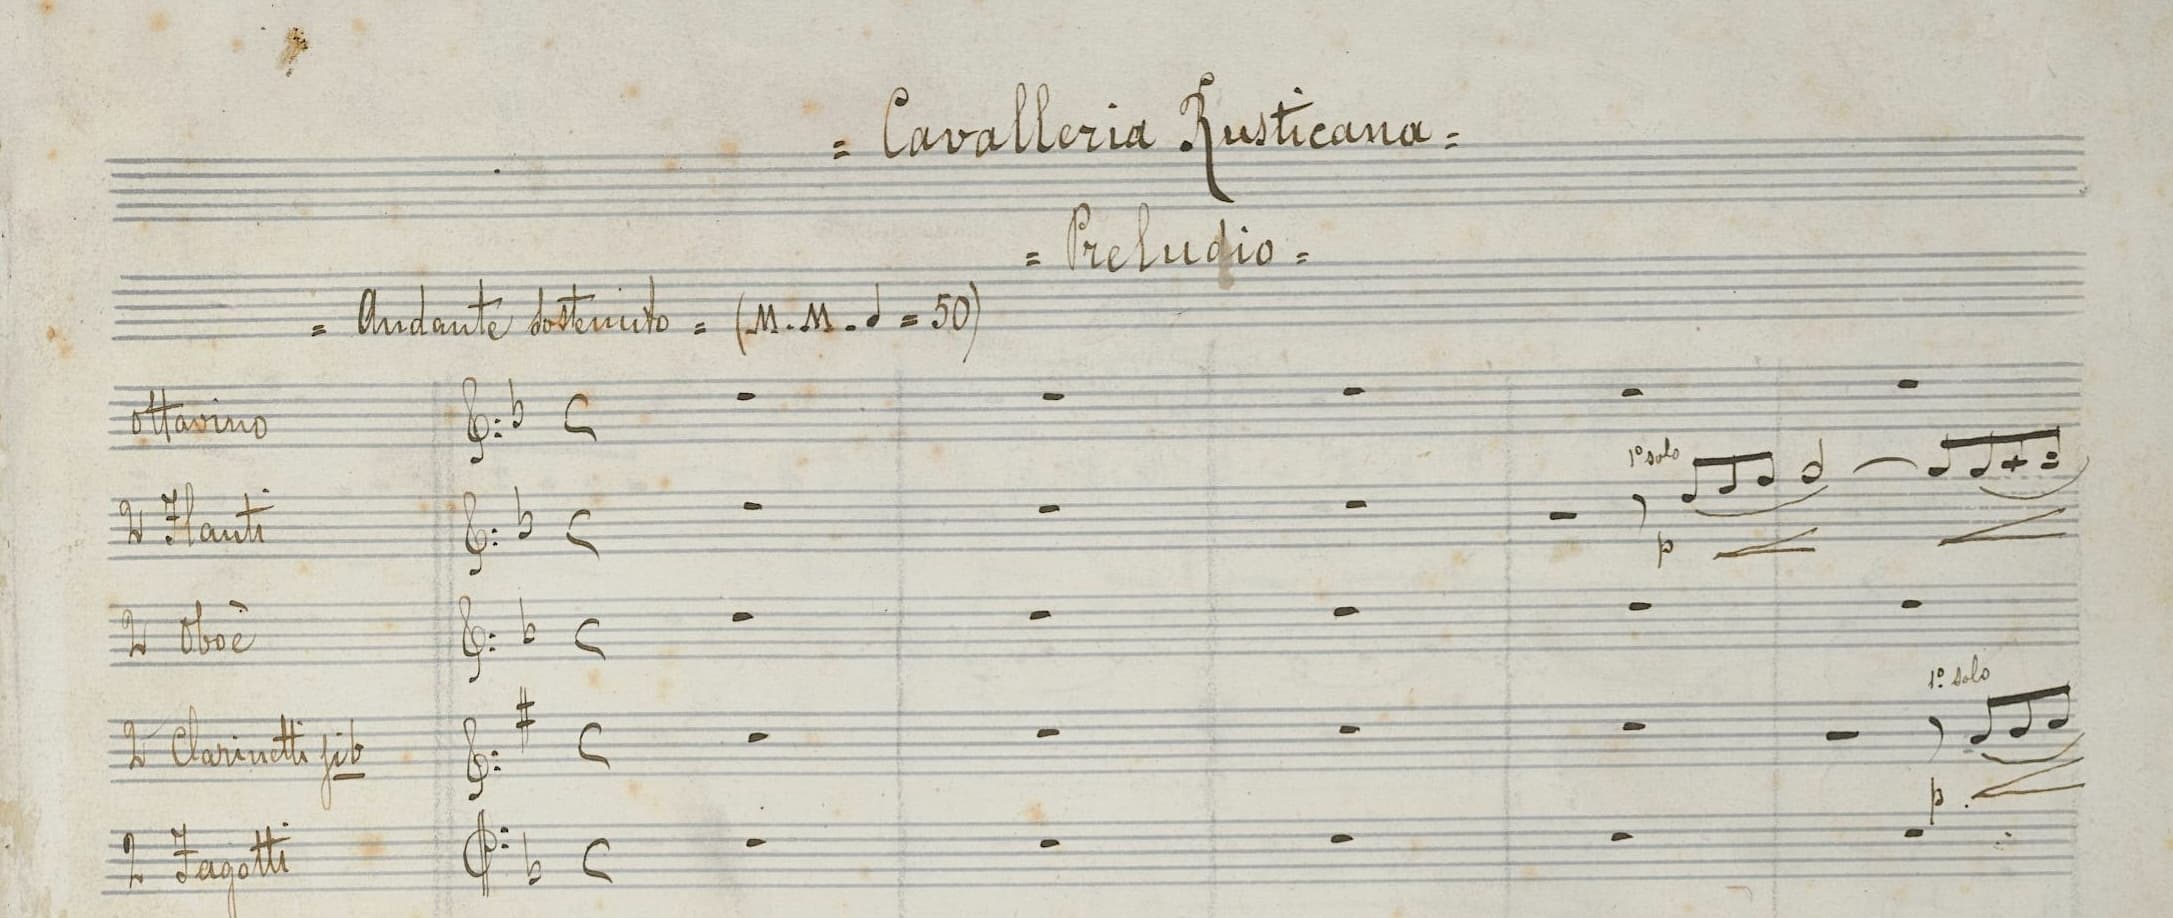 = Cavalleria Rusticana =
= Preludio =
= Andante sostenuto = (M.M. 𝅗𝅥 = 50)
ottavino
1º solo
2 Flauti
p
2 Oboè
1º solo
2 Clarinetti sib
p
2 Fagotti